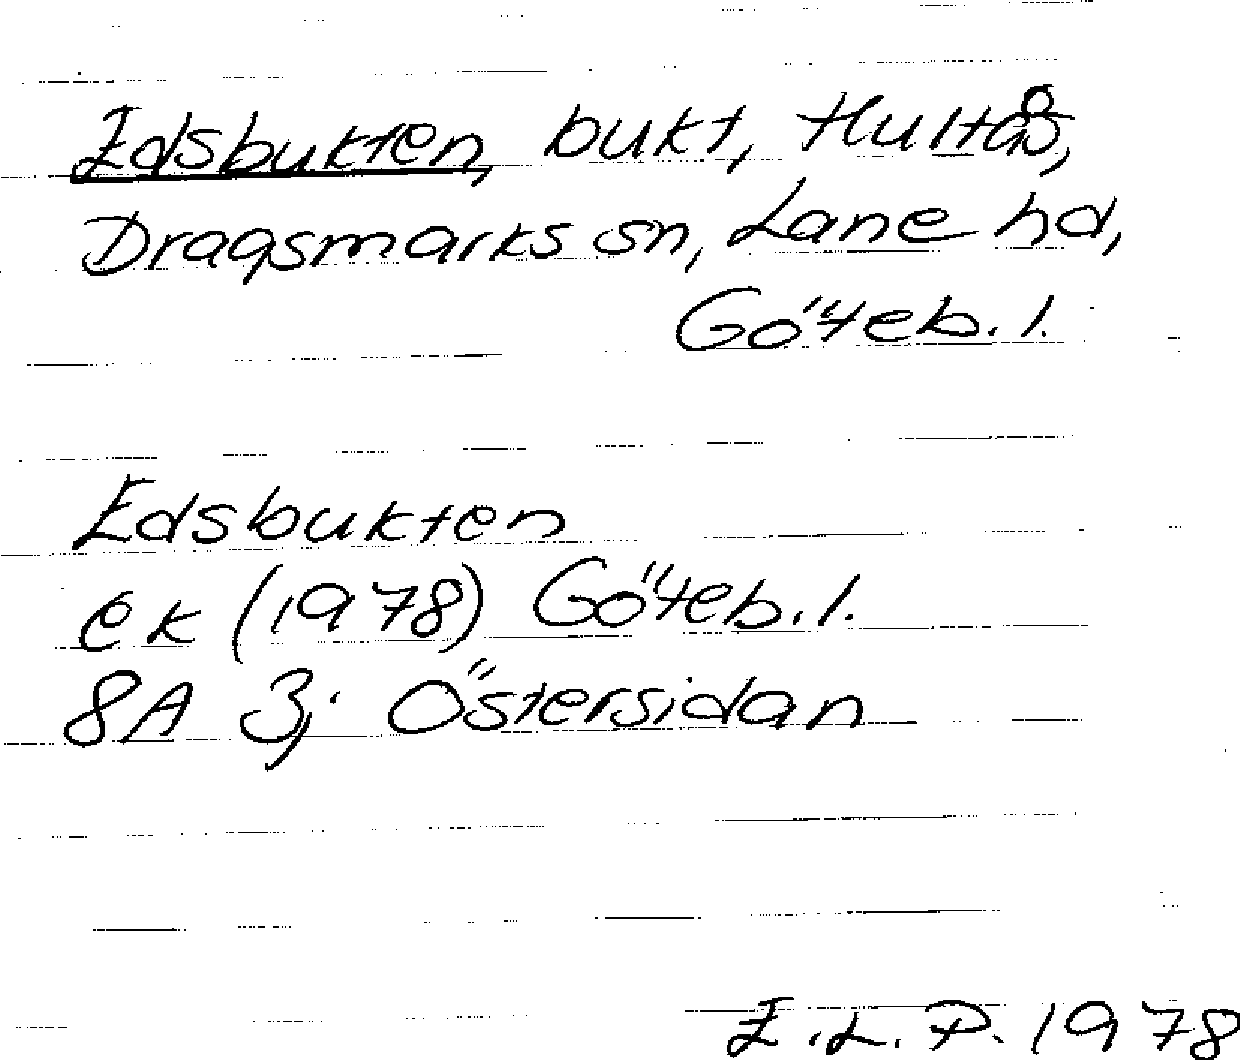 Edsbukten, bukt, Hultås,
Dragsmarks sn, Lane hd,
Göteb. l.
Edsbukten
ek (1978) Göteb. l.
8A 3j Östersidan
E. L. P. 1978